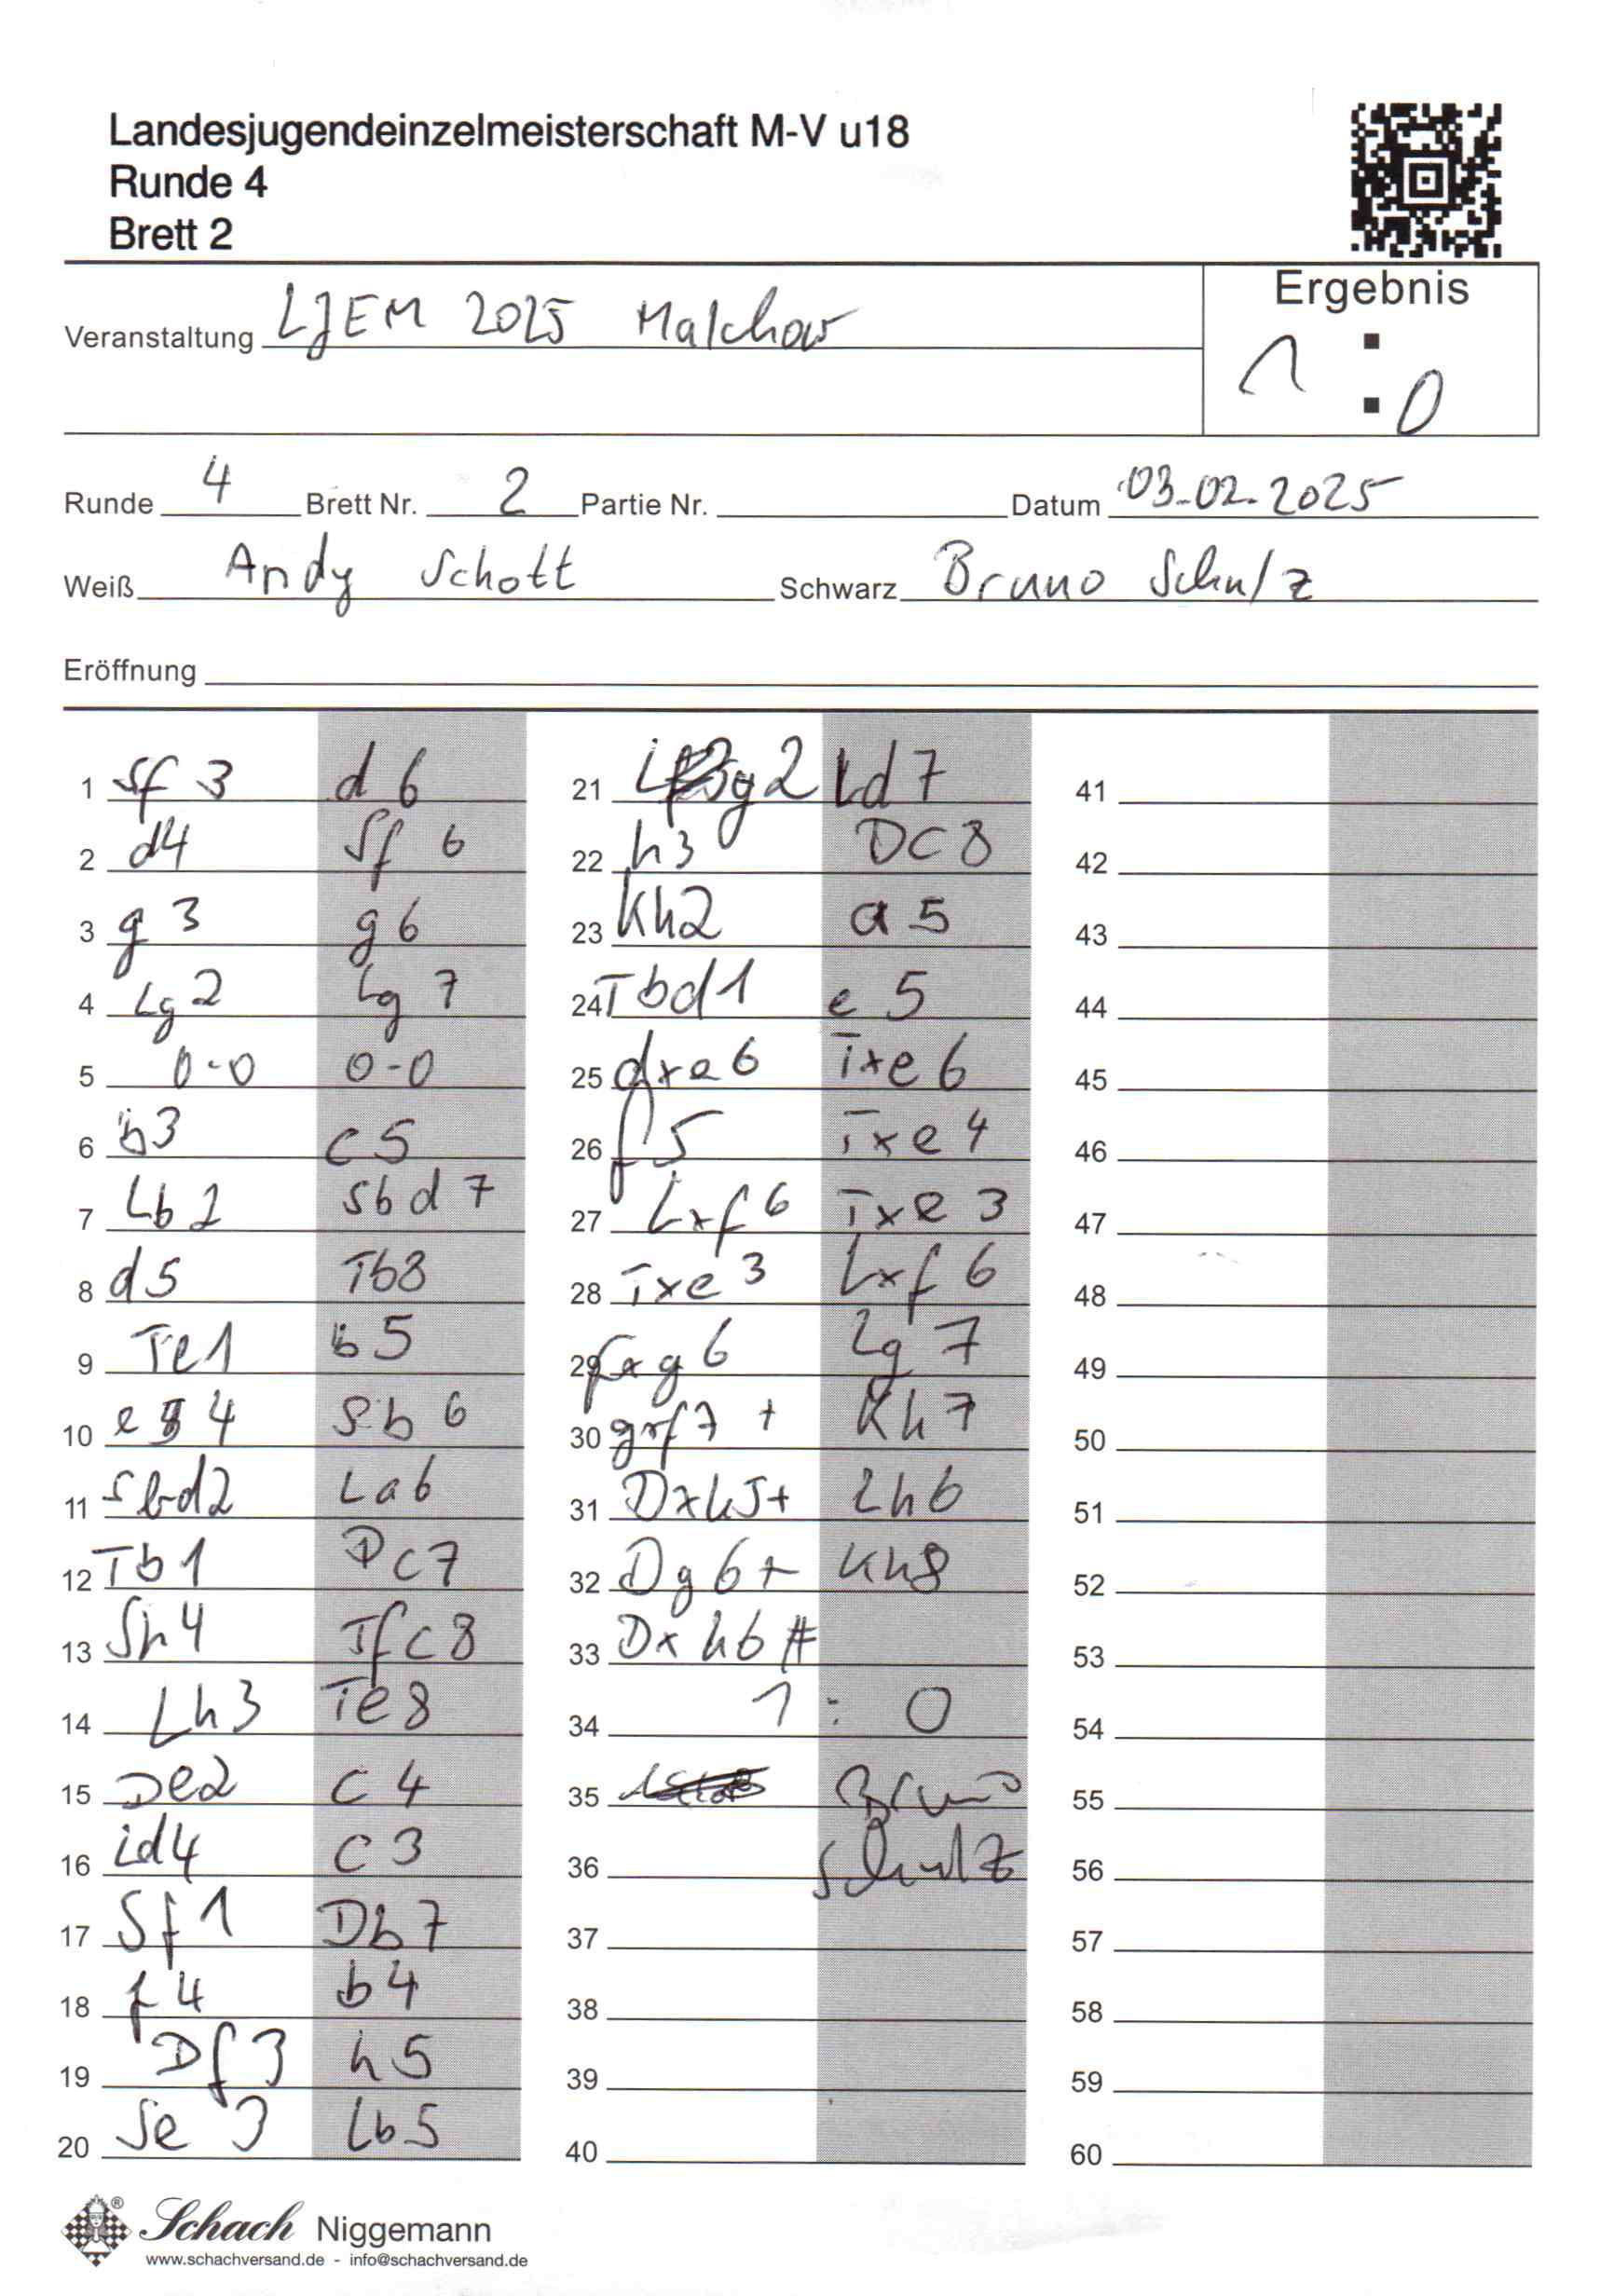 Landesjugendeinzelmeisterschaft M-V u18
Runde 4
Brett 2
Ergebnis
Veranstaltung LJEM 2025 Malchow
1 : 0
Runde 4 Brett Nr. 2 Partie Nr. Datum 03.02.2025
Weiß Andy Schott Schwarz Bruno Schulz
Eröffnung
1 Sf3 d6
2 d4 Sf6
3 g3 g6
4 Lg2 Lg7
5 0-0 0-0
6 b3 c5
7 Lb2 Sbd7
8 d5 Tb8
9 Te1 b5
10 e4 Sb6
11 Sbd2 La6
12 Tb1 Dc7
13 Sh4 Tfc8
14 Lh3 Te8
15 De2 c4
16 Ld4 c3
17 Sf1 Db7
18 f4 b4
19 Df3 h5
20 Se3 Lb5
21 Lg2 Ld7
22 h3 Dc8
23 Kh2 a5
24 Tbd1 e5
25 dxe6 Txe6
26 f5 Txe4
27 Lxf6 Txe3
28 Txe3 Lxf6
29 fxg6 Lg7
30 gxf7+ Kh7
31 Dxh5+ Lh6
32 Dg6+ Kh8
33 Dxh6#
34 1 : 0
35 Bruno
36 Schulz
37
38
39
40
41
42
43
44
45
46
47
48
49
50
51
52
53
54
55
56
57
58
59
60
Schach Niggemann
www.schachversand.de - info@schachversand.de